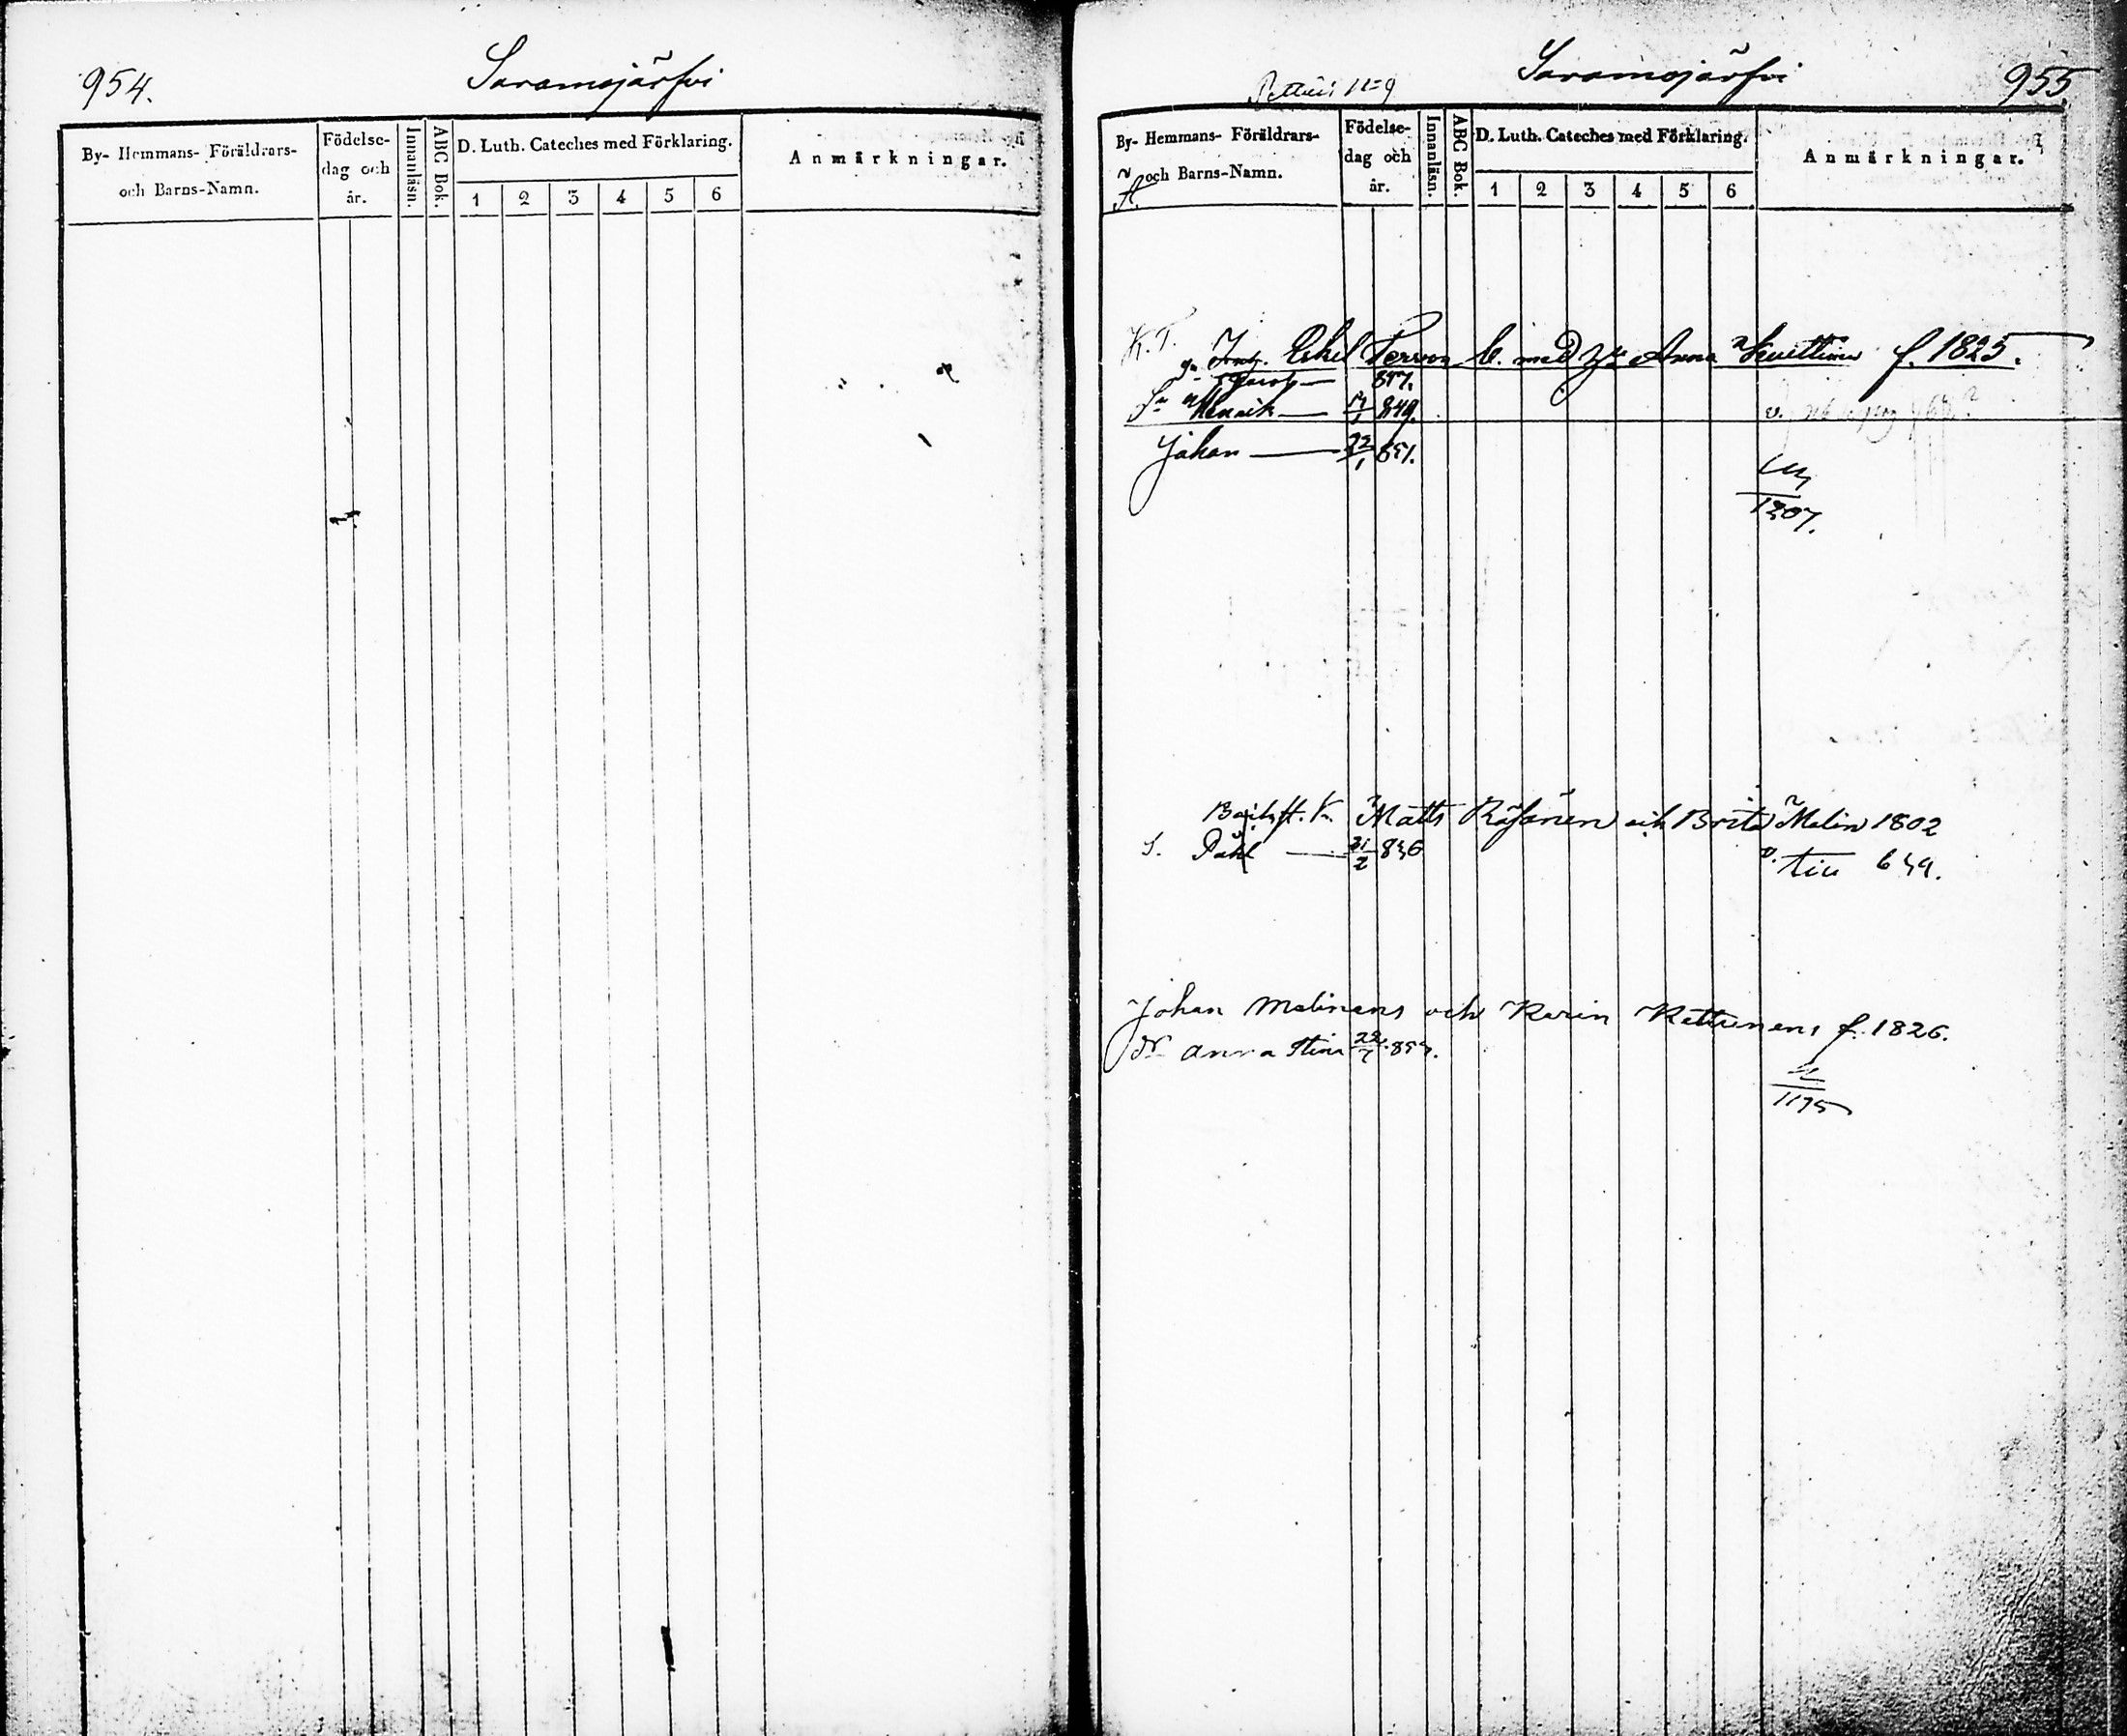 954.
Saramojärfvi
By- Hemmans- Föräldrars-
och Barns-Namn.
Födelse-
dag och
år.
Innanläsn.
ABC Bok.
D. Luth. Cateches med Förklaring.
1 2 3 4 5 6
Anmärkningar.
Saramojärfvi
955
By- Hemmans- Föräldrars-
och Barns-Namn.
Födelse-
dag och
år.
Innanläsn.
ABC Bok.
D. Luth. Cateches med Förklaring.
1 2 3 4 5 6
Anmärkningar.
K. T.
Eskel Person med Anna f. 1825.
847.
Henrik 849.
Johan 22/1 851.
1207.
Matts Räisänen och Brita Malin 1802
S. Påhl 836
649.
Johan Malinens och Karin Kettunens f. 1826.
Dr Anna Stina
1175